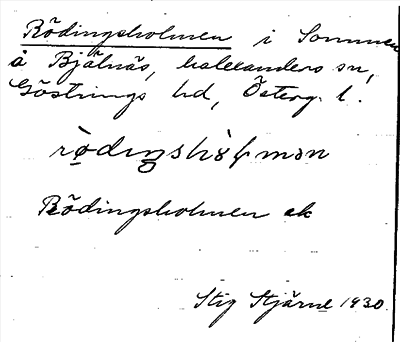 Rödingsholmen i Sommen
å Bjälnäs, Malexanders sn,
Göstrings hd, Österg. l.
Rödingsholmen ek
Stig Stjärne 1930